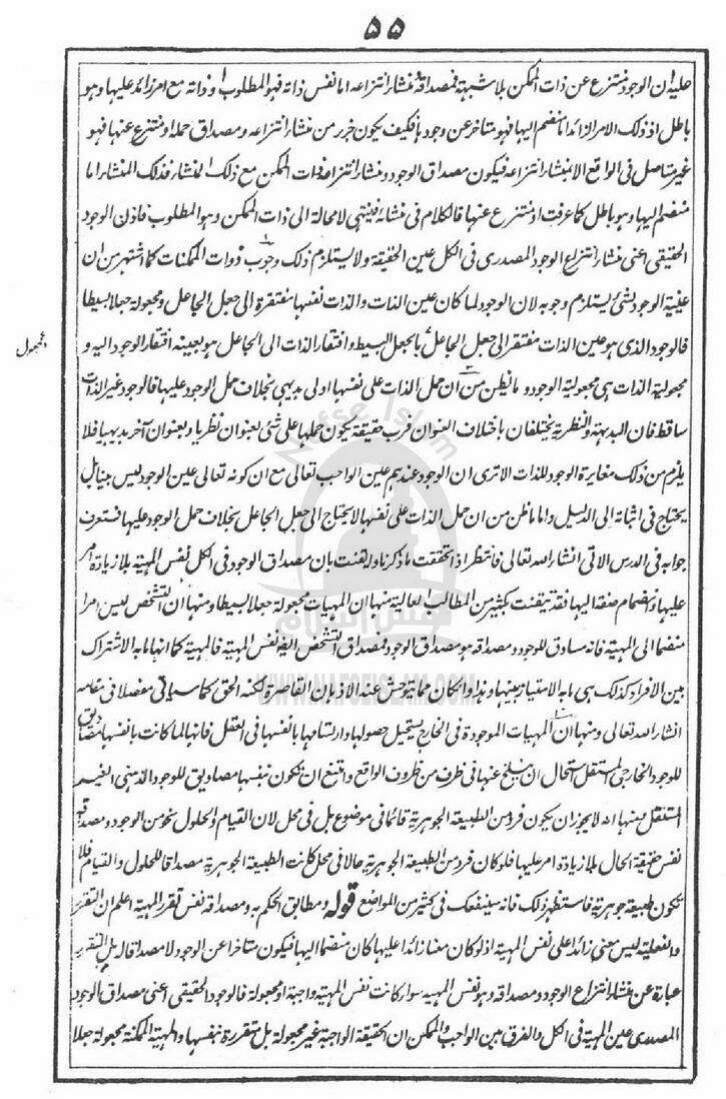 ۵۵
عليه ان الوجود منتزع عن ذات الممكن بلا شبهة فمصداقه ومنشأ انتزاعه اما نفس ذاته فهو المطلوب او ذاته مع امر زائد عليها وهو
باطل اذ ذلك الامر الزائد اما منضم اليها فهو متاخر عن وجودها فكيف يكون جزء من منشأ انتزاعه ومصداق حمله او منتزع عنها فهو
غير متاصل فى الواقع الا بمنشأ انتزاعه فيكون مصداق الوجود ومنشأ انتزاعه ذات الممكن مع ذلك المنشأ فذلك المنشأ اما
منضم اليها وهو باطل كما عرفت او منتزع عنها فالكلام فى منشائه فينتهى لا محالة الى ذات الممكن وهو المطلوب فاذن الوجود
الحقيقى اعنى منشأ انتزاع الوجود المصدرى فى الكل عين الحقيقة ولا يستلزم ذلك وجوب ذوات الممكنات كما اشتهر من ان
عينية الوجود لشئ يستلزم وجوبه لان الوجود لما كان عين الذات والذات نفسها مفتقرة الى جعل الجاعل ومجعولة جعلا بسيطا
فالوجود الذى هو عين الذات مفتقر الى جعل الجاعل بالجعل البسيط وافتقار الذات الى الجاعل هو بعينه افتقار الوجود اليه و
مجعولية الذات هى مجعولية الوجود وما يظن من ان حمل الذات على نفسها اولى بديهى بخلاف حمل الوجود عليها فالوجود غير الذات
ساقط فان البديهية والنظرية يختلفان باختلاف العنوان فرب حقيقة يكون حملها على شئ بعنوان نظريا وبعنوان آخر بديهيا فلا
يلزم من ذلك مغايرة الوجود للذات الا ترى ان الوجود عندهم عين الواجب تعالى مع ان كونه تعالى عين الوجود ليس بينا بل
يحتاج فى اثباته الى الدليل واما ما ظن من ان حمل الذات على نفسها لا يحتاج الى جعل الجاعل بخلاف حمل الوجود عليها فستعرف
جوابه فى الدرس الآتى انشاء الله تعالى فانتظر اذا تحققت ما ذكرنا وايقنت بان مصداق الوجود فى الكل نفس المهية بلا زيادة امر
عليها وانضمام صفة اليها فقد تيقنت كثير من المطالب العالية منها ان المهيات مجعولة جعلا بسيطا ومنها ان التشخص ليس امرا
منضما الى المهية فانه مساوق للوجود ومصداقه هو مصداق الوجود فمصداق التشخص ايضا نفس المهية فالمهية كما انها ما به الاشتراك
بين الافراد كذلك هى ما به الامتياز بينها وهذا وان كان مما يتوحش عنه الاذهان القاصرة لكنه الحق كما سياتى مفصلا فى مقامه
انشاء الله تعالى ومنها ان المهيات الموجودة فى الخارج يستحيل حصولها وارتسامها بانفسها فى العقل فانها لما كانت بانفسها مصاديق
للوجود الخارجى المستقل استحال ان ينسلخ عنها فى ظرف من ظروف الواقع وامتنع ان تكون بنفسها مصاديق للوجود الذهنى الغير
المستقل ومنها انه لا يجوز ان يكون فرد من الطبيعة الجوهرية قائما فى موضوع بل فى محل لان القيام والحلول نحو من الوجود ومصداقه
نفس حقيقة الحال بلا زيادة امر عليها فلو كان فرد من الطبيعة الجوهرية حالا فى محل كانت الطبيعة الجوهرية مصداقا للحلول والقيام فلا
تكون طبيعة جوهرية فاستظهر ذلك فانه سينفعك فى كثير من المواضع قوله ومطابق الحكم به ومصداقه نفس تقرر المهية اعلم ان التقرر
والفعلية ليس معنى زائدا على نفس المهية اذ لو كان معنا زائدا عليها كان منضما اليها فيكون متاخرا عن الوجود لا مصداقا له بل التقرر
عبارة عن منشأ انتزاع الوجود ومصداقه وهو نفس المهية سواء كانت نفس المهية واجبة او مجعولة فالوجود الحقيقى اعنى مصداق الوجود
المصدرى عين المهية فى الكل والفرق بين الواجب والممكن ان الحقيقة الواجبة غير مجعولة بل متقررة بنفسها والمهية الممكنة مجعولة جعلا
Nafse Islam
نفس اسلام
WWW.NAFSEISLAM.COM